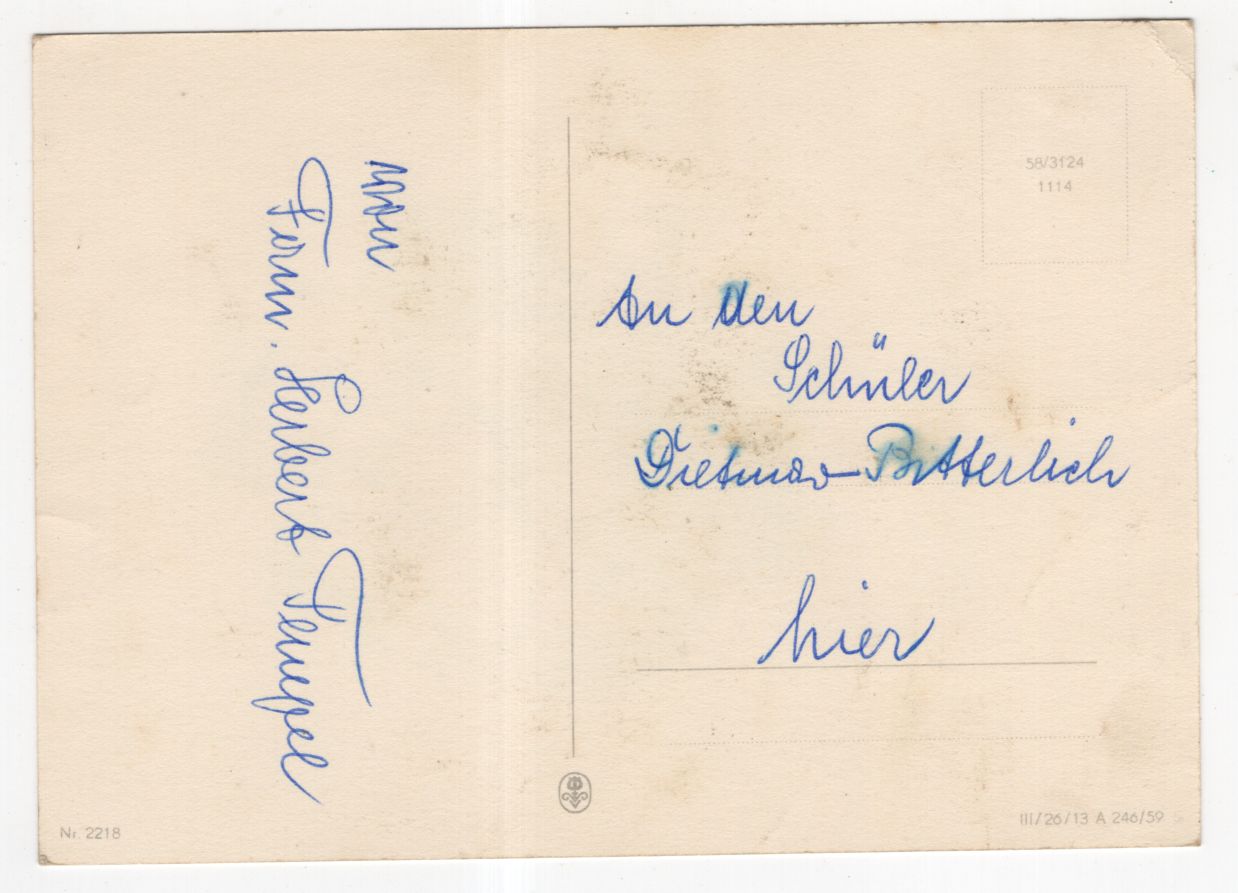 von
Fam. Herbert Tempel
58/3124
1114
An den
Schüler
Dietmar Bitterlich
hier
Nr. 2218
III/26/13 A 246/59